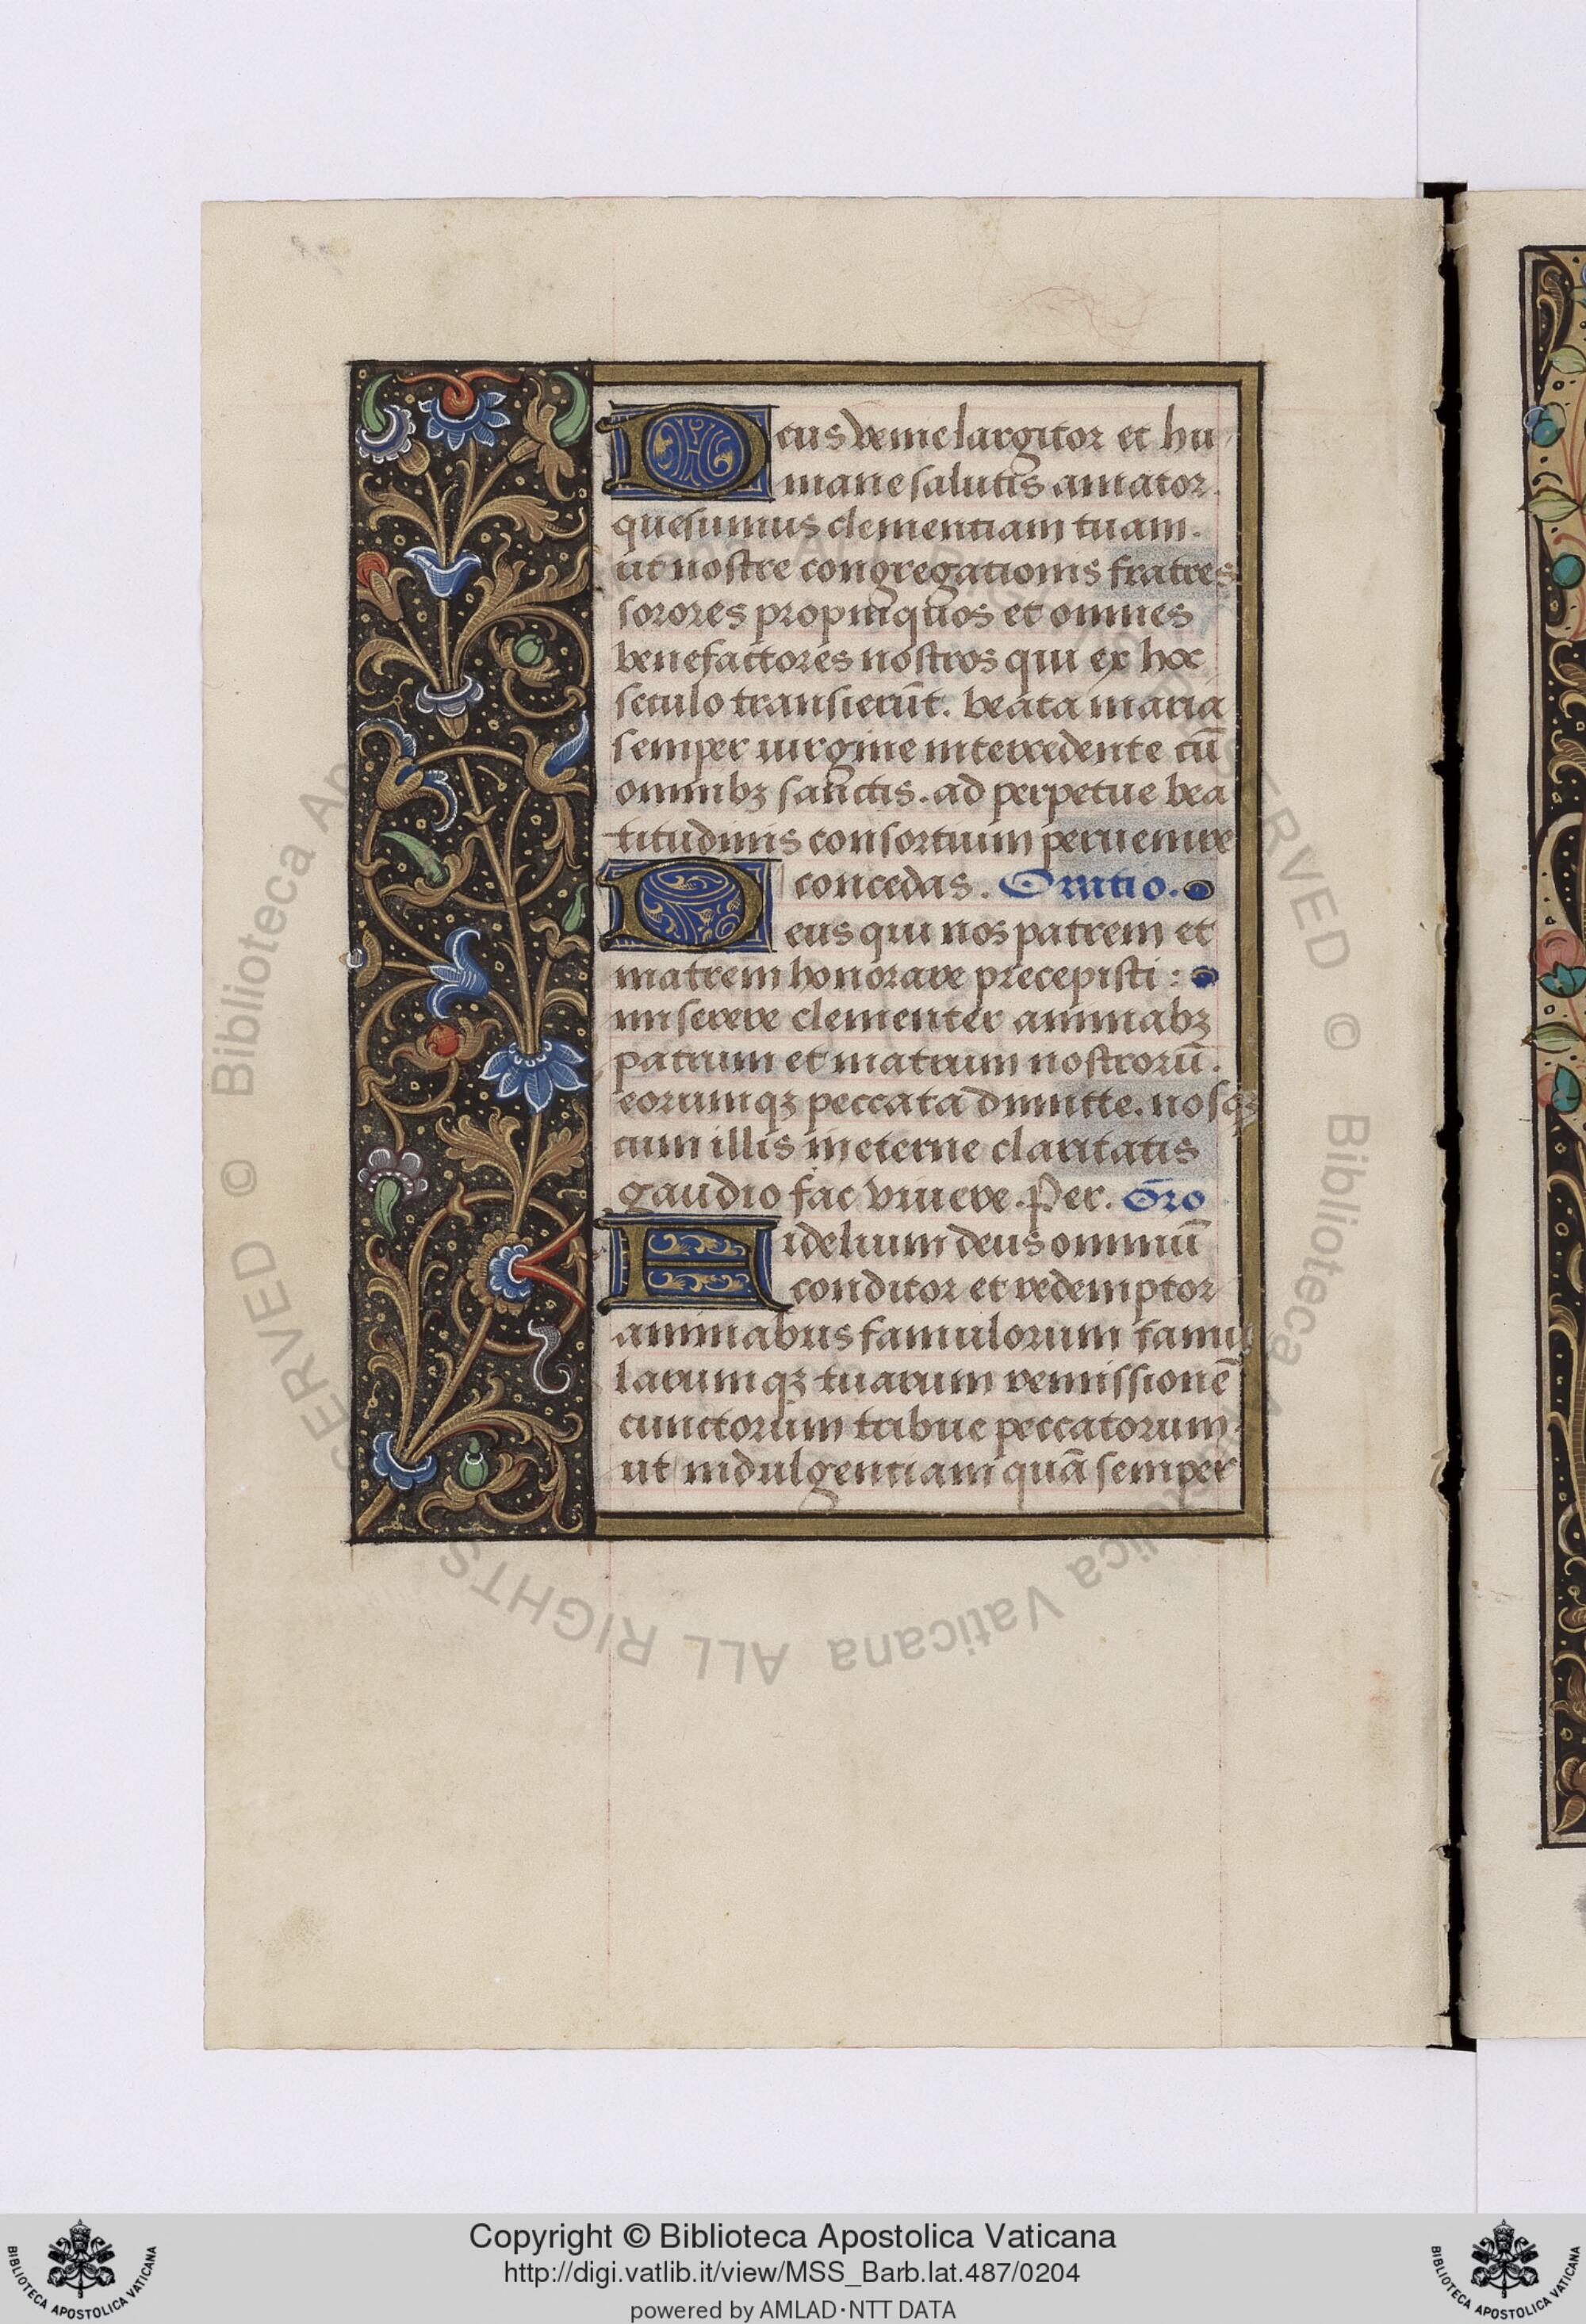 Deus venie largitor et hu
mane salutis amator.
quesumus clementiam tuam.
ut nostre congregationis fratres
sorores propinquos et omnes
benefactores nostros qui ex hoc
seculo transierūt. beata maria
semper uirgine intercedente cū
omnibꝫ sanctis. ad perpetue bea
titudinis consortium peruenire
concedas. Oratio.
Deus qui nos patrem et
matrem honorare precepisti:
miserere clementer animabꝫ
patrum et matrum nostrorū.
eorumqꝫ peccata dimitte. nosqꝫ
cum illis in eterne claritatis
gaudio fac viuere. Per. Oro
Fidelium deus omniū
conditor et redemptor
animabus famulorum famu
larumqꝫ tuarum remissionē
cunctorum tribue peccatorum.
ut indulgentiam quā semper
Biblioteca Apostolica Vaticana ALL RIGHTS RESERVED ©
Copyright © Biblioteca Apostolica Vaticana
http://digi.vatlib.it/view/MSS_Barb.lat.487/0204
powered by AMLAD·NTT DATA
BIBLIOTECA APOSTOLICA VATICANA
BIBLIOTECA APOSTOLICA VATICANA